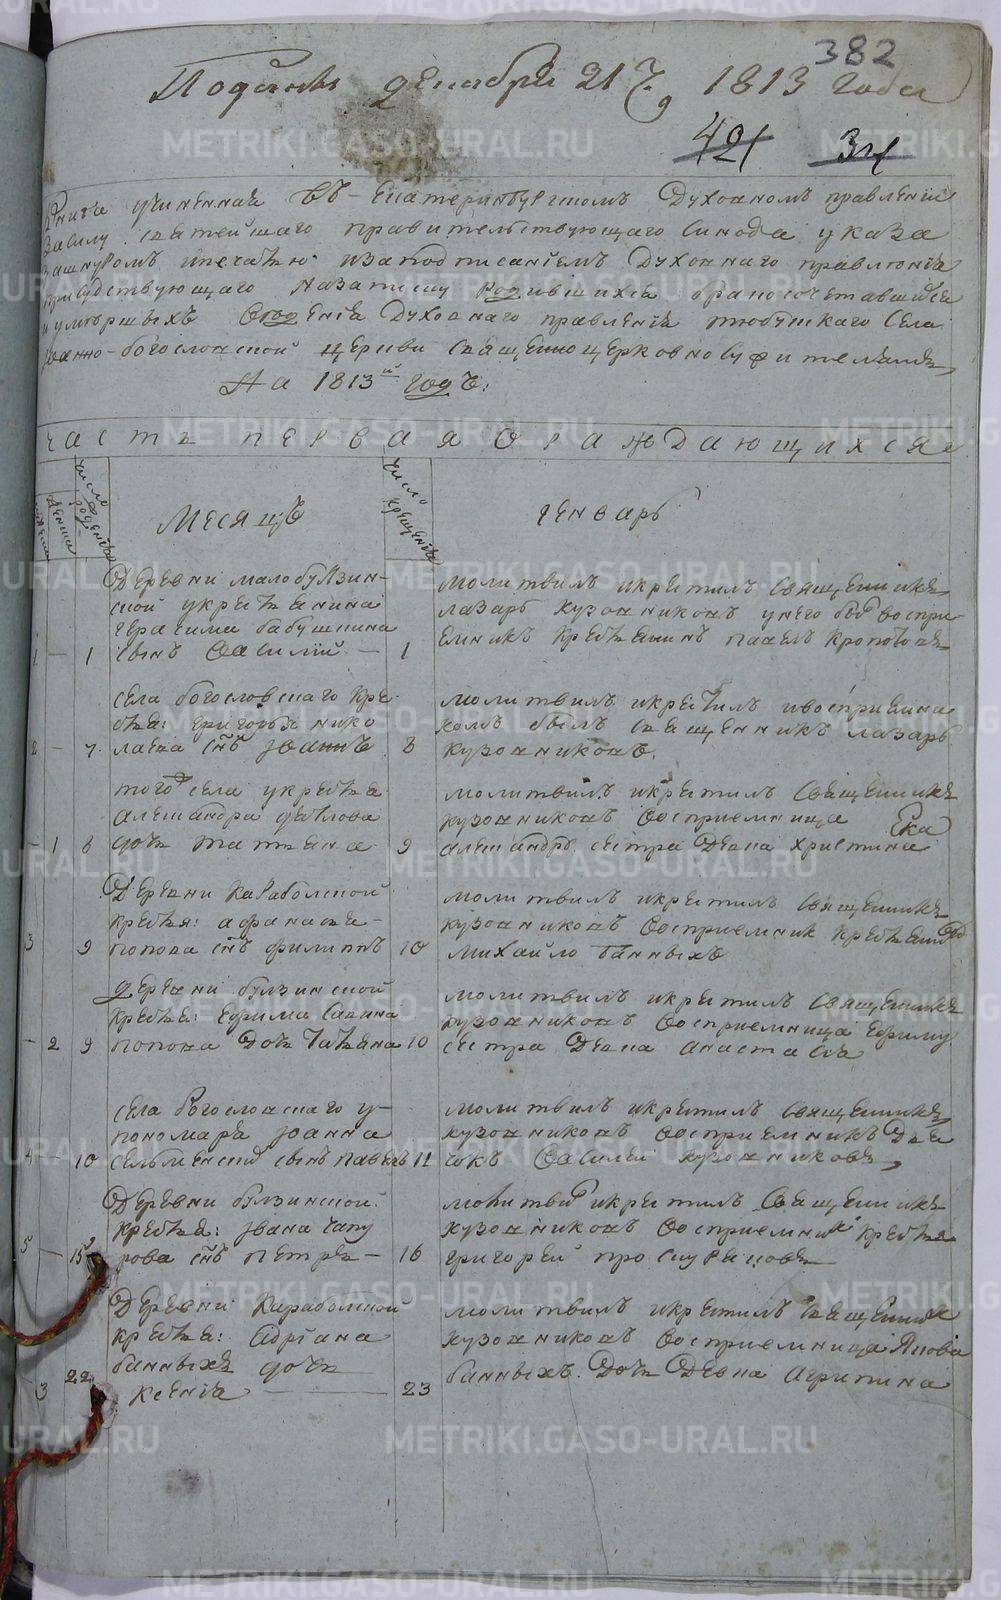 382
Подана декабря 21 ч 1813 года
421 34
Книга учиненная въ Екатеринбургскомъ Духовномъ правленіи
всилу святейшаго правительствующаго Синода указа
зашнуромъ ипечатью изаподписаніемъ Духовнаго правленія
присудствующаго назаписку родившихся браносочетавшихся
иумършихъ ведѣнія Духовнаго правленія села
Iоанно-богословской церкви священноцерковнослужителямъ
На 1813й годъ:
часть первая ораждающихся
число рожденія
число крещенія
Месяцъ
генварь
Деревни малобулзин-
ской укрестьянина
герасима бабушкина
1 — 1 сынъ Василій — 1
молитвилъ икрестилъ священникъ
лазарь кузовниковъ унего был воспри-
емникъ крестьянинъ павелъ кропотовъ
села богословскаго кре-
стья: григорья нико
2 — 7 лаева снъ Iванъ 8
молитвилъ икрестилъ ивосприемни
комъ былъ священникъ лазарь
кузовниковъ.
того села укрестья
александра светлова
— 1 8 дочь татьяна 9
молитвилъ икрестилъ священникъ
кузовниковъ восприемница Ека
александръ сестра Девка христина
Деревни Караболской
крестья: афанасья
3 9 попова снъ филиппъ 10
молитвилъ икрестилъ священникъ
кузовниковъ восприемник крестьянинъ
михайло банныхъ
деревни булзинской
крестья: Ефима Савина
— 2 9 попова дочь татьяна 10
молитвилъ икрестилъ священникъ
кузовниковъ восприемница Ефиму
сестра Девка анастасья
села богословскаго у-
пономаря Iоанна
4 10 сынъ павелъ 11
молитвилъ икрестилъ священникъ
кузовниковъ восприемникъ Дья
чокъ Василей кузовниковъ
Деревни булзинской
крестья: Iвана чапу
5 — 15 рова снъ петръ — 16
молитвил икрестилъ священникъ
кузовниковъ восприемник крестья
григорей проскуряковъ
Деревни Караболской
крестья: Адріана
банныхъ дочь
3 22 Ксенія — 23
молитвилъ икрестилъ священникъ
кузовниковъ восприемница Якова
банныхъ дочь Девка агрипина
METRIKI.GASO-URAL.RU